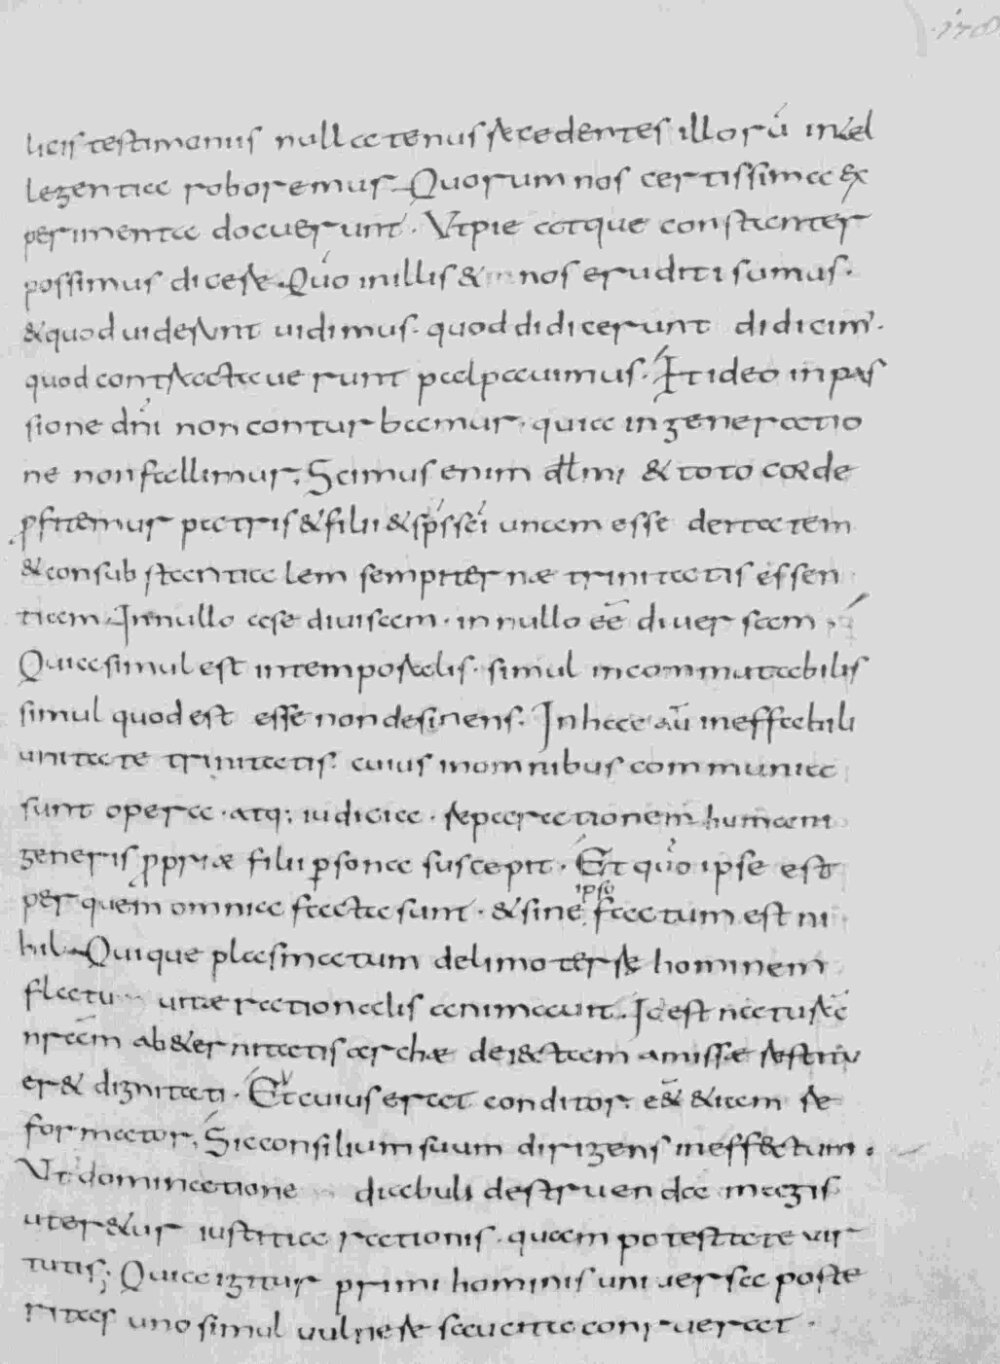 ·178
licis testimoniis nullatenus recedentes illorū intel
legentia roboremus. Quorum nos certissima ex
perimenta docuerunt. Ut pie atque constanter
possimus dicere. Quo in illis & in nos eruditi sumus.
& quod uiderunt uidimus. quod didicerunt didicim'.
quod contractauerunt palpauimus. Et ideo in pas
sione dñi non conturbamur. quia in generatio
ne non fallimur. Scimus enim dilmi & toto corde
profitemur patris & filii & sps sci unam esse deitatem
& consubstantialem sempiternæ trinitatis essen
tiam. In nullo a se diuisam. in nullo eē diuersam.
Quia simul est intemporalis. simul incommutabilis
simul quod est esse non desinens. In hac aū ineffabili
unitate trinitatis. cuius in omnibus communia
sunt opera. atq; iudicia. reparationem humani
generis propriæ filii persona suscepit. Et quo ipse est
per quem omnia facta sunt. & sine ipso factum est ni
hil. Quique plasmatum de limo terre hominem
flatu uitæ rationalis animauit. Idest naturā
nrām ab &ernitatis arche deiectam amissæ restitu
er& dignitati. Et cuius erat conditor. e& &iam re
formator. Sic consilium suum dirigens in effectum.
Ut dominatione diabuli destruenda magis
uter&ur iustitia rationis. quam potestate uir
tutis; Quia igitur primi hominis uniuersa poste
ritas uno simul uulnere sauciata conruerat.